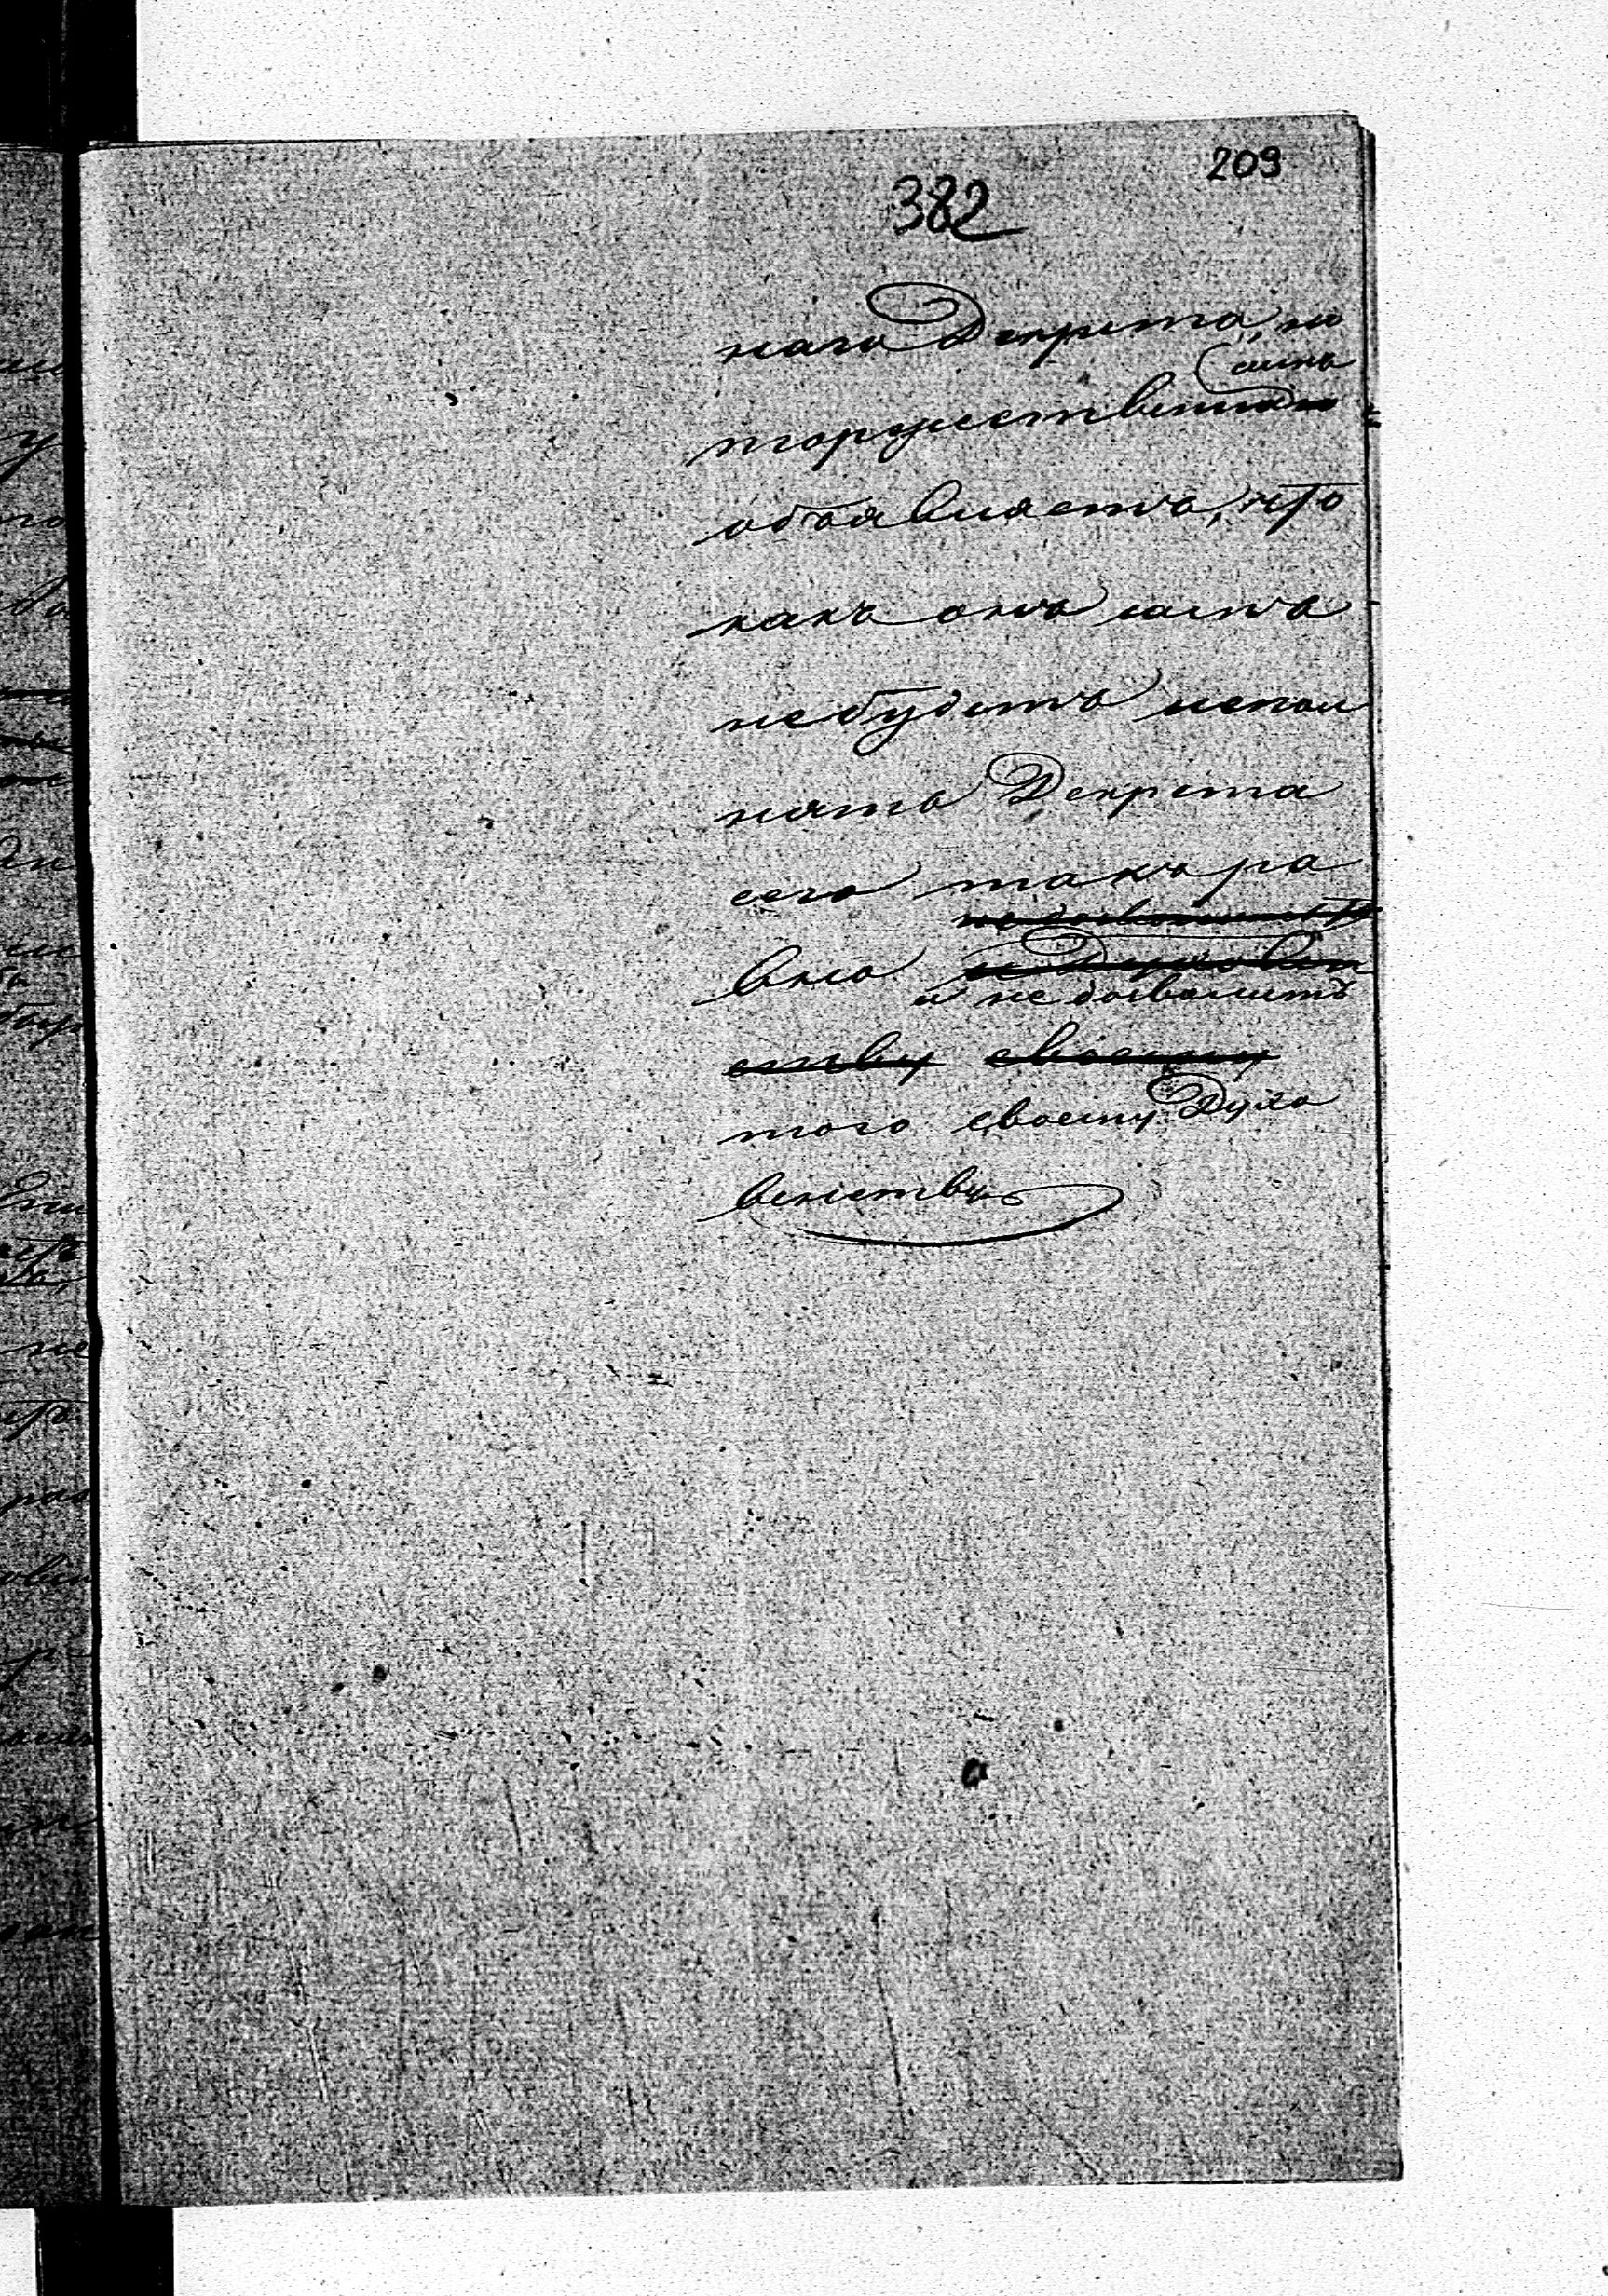 209
382
наго Декрета, но
симъ
торжественно
объявляетъ, что
какъ онъ самъ
небудетъ испол
нять Декрета
сего такъ ра
вно и Духовен
и не дозволитъ
ству своему
того своему Духо
венству